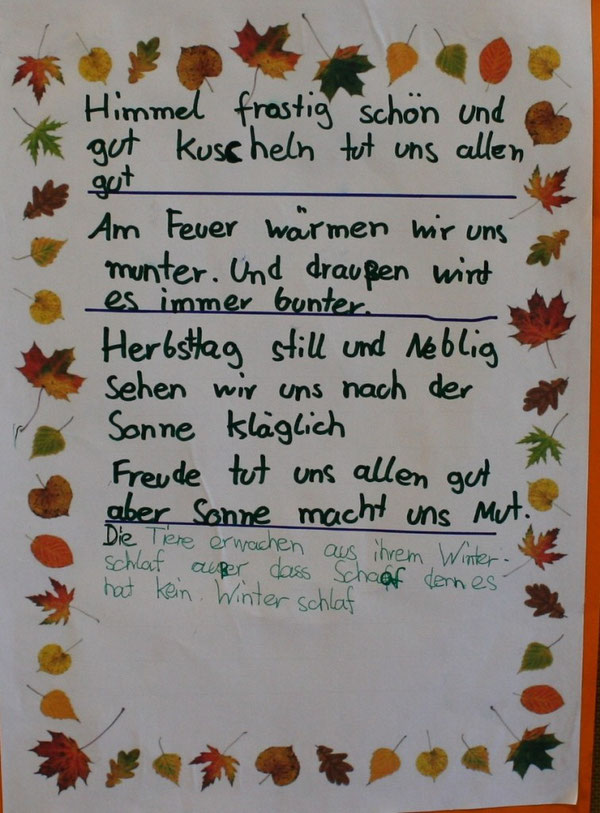 Himmel frostig schön und
gut kuscheln tut uns allen
gut
Am Feuer wärmen wir uns
munter. Und draußen wird
es immer bunter.
Herbsttag still und Neblig
Sehen wir uns nach der
Sonne kläglich
Freude tut uns allen gut
aber Sonne macht uns Mut.
Die Tiere erwachen aus ihrem Winter-
schlaf außer dass Schaf denn es
hat kein Winterschlaf